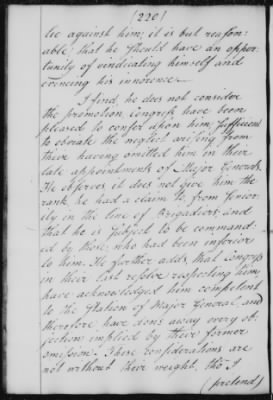 (220)
lie against him; it is but reason-
able that he should have an oppor-
tunity of vindicating himself and
evincing his innocence.
I find, he does not consider
the promotion, Congress have been
pleased to confer upon him, sufficient
to obviate the neglect arising from
their having omitted him in their
late appointments of Major Generals.
He observes, it does not give him the
rank he had a claim to, from senior-
ity in the line of Brigadiers; and
that he is subject to be command-
ed by those, who had been inferiors
to him. He further adds, that Congress
in their last resolve respecting him,
have acknowledged him competent
to the station of Major General, and
therefore have done away every ob-
jection implied by their former
omission. These considerations are
not without their weight, tho' I
(pretend)